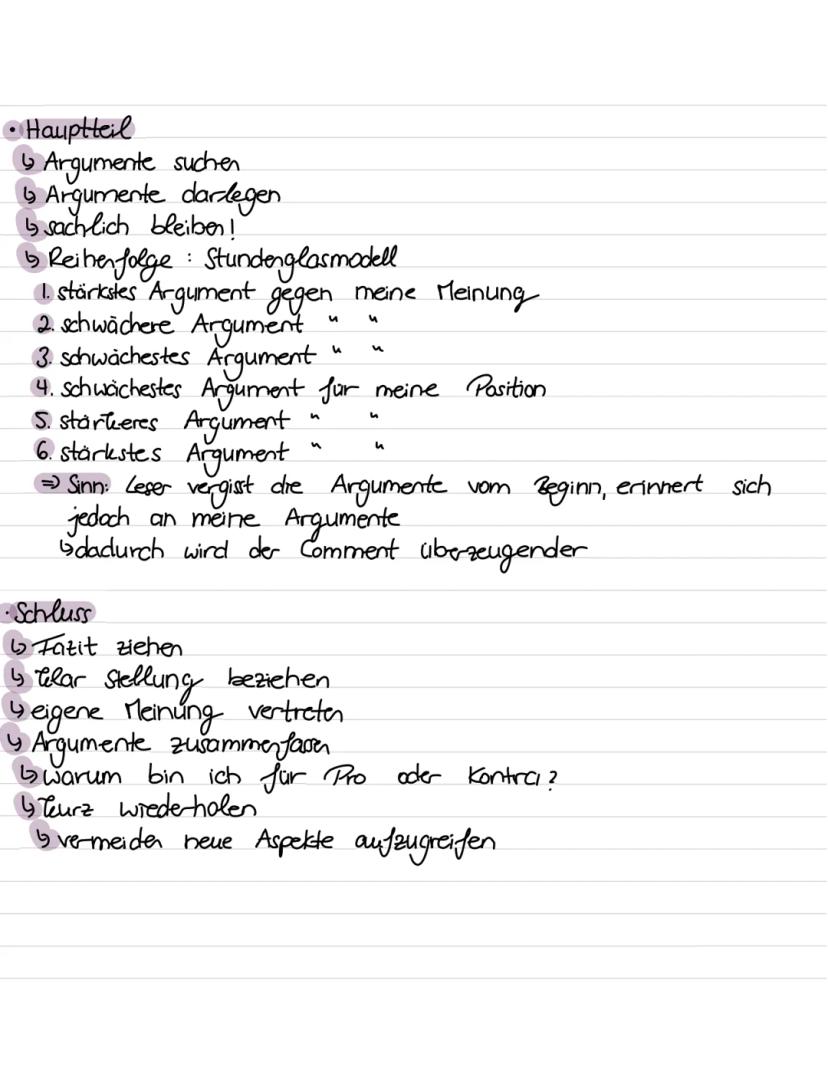 • Hauptteil
↳ Argumente suchen
↳ Argumente darlegen
↳ sachlich bleiben!
↳ Reihenfolge : Stundenglasmodell
1. stärkstes Argument gegen meine Meinung
2. schwächere Argument " "
3. schwächestes Argument " "
4. schwächestes Argument für meine Position
5. stärkeres Argument " "
6. stärkstes Argument " "
⇒ Sinn: Leser vergisst die Argumente vom Beginn, erinnert sich
jedoch an meine Argumente
↳ dadurch wird der Comment überzeugender
• Schluss
↳ Fazit ziehen
↳ klar Stellung beziehen
↳ eigene Meinung vertreten
↳ Argumente zusammenfassen
↳ warum bin ich für Pro oder Kontra?
↳ kurz wiederholen
↳ vermeiden neue Aspekte aufzugreifen